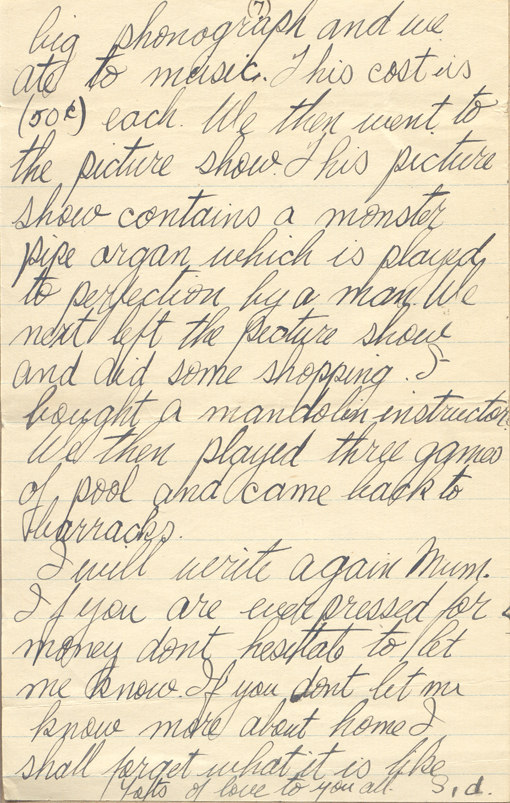 (7)
big phonograph and we
ate to music. This cost is
(50¢) each. We then went to
the picture show. This picture
show contains a monster
pipe organ which is played
to perfection by a man. We
next left the picture show
and did some shopping. I
bought a mandolin instructor
We then played three games
of pool and came back to
barracks.
I will write again Mum.
If you are ever pressed for
money dont hesitate to let
me know. If you dont let me
know more about home I
shall forget what it is like
Lots of love to you all. S, d.